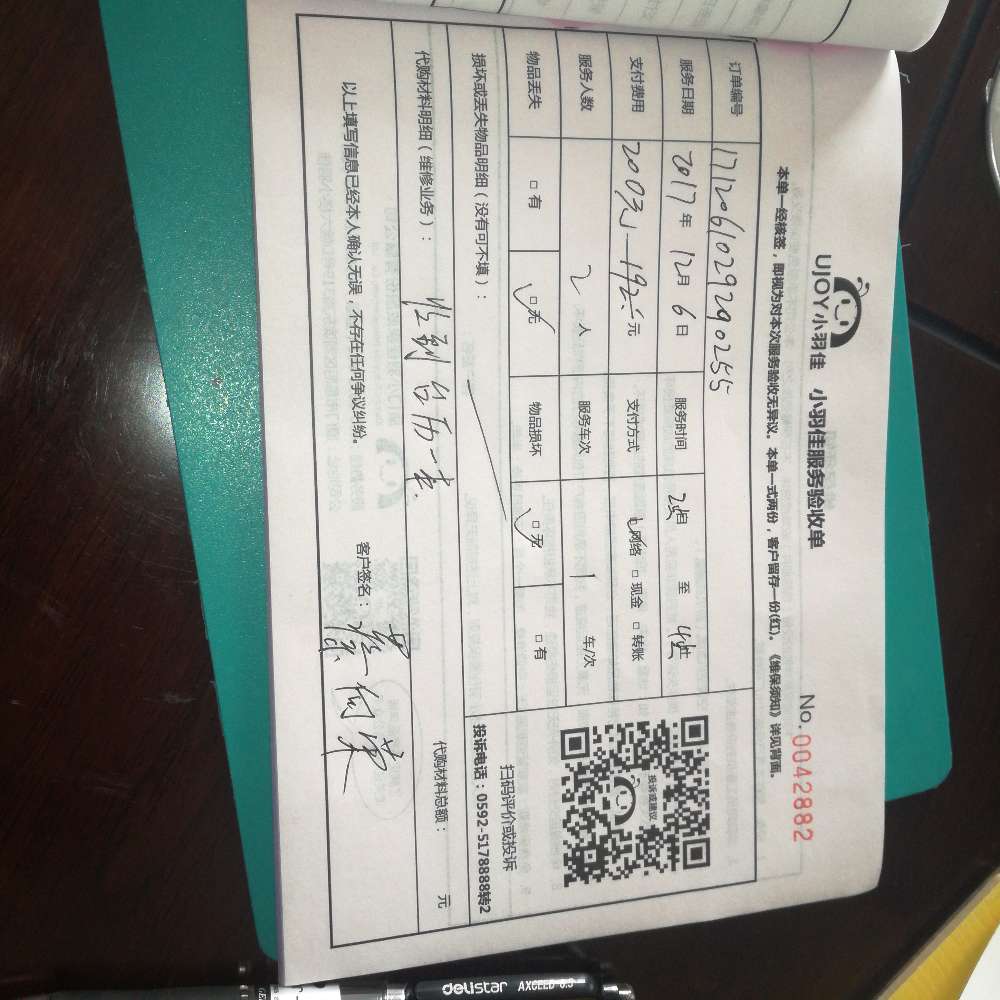 UJOY小羽佳 小羽佳服务验收单
No.0042882
本单一经核签，即视为对本次服务验收无异议。本单一式两份，客户留存一份(红)。《维保须知》详见背面。
订单编号 1712061029290255
服务日期 2017年 12月 6日 服务时间 至
支付费用 元 支付方式 网络 □ 现金 □ 转账
服务人数 2 人 服务车次 1 车/次
物品丢失 □ 有 □ 无 物品损坏 □ 无 □ 有
损坏或丢失物品明细（没有可不填）：
投诉或建议
扫码评价或投诉
投诉电话：0592-5178888转2
代购材料明细（维修业务）： 收到台历一本. 代购材料总额： 元
以上填写信息已经本人确认无误，不存在任何争议纠纷。
客户签名：
delistar AXCEED 0.5